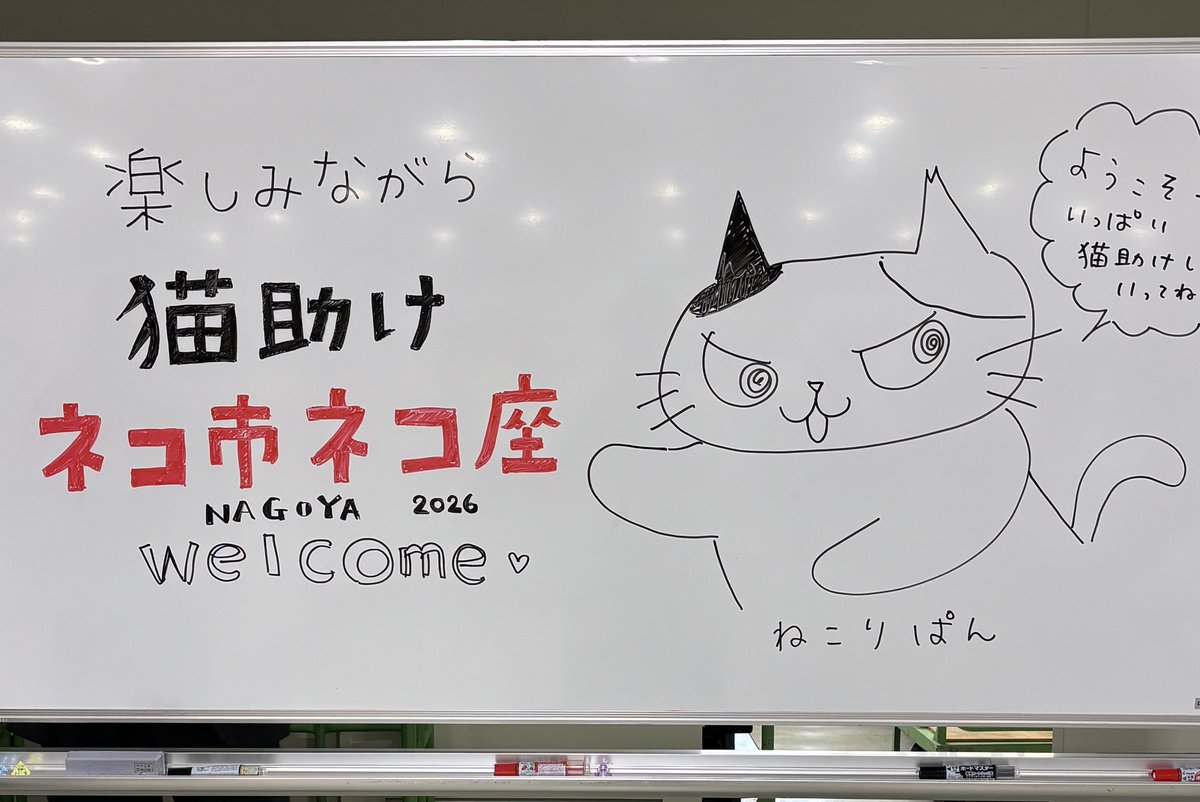 楽しみながら
猫助け
ネコ市ネコ座
NAGOYA 2026
welcome♡
ようこそ
いっぱい
猫助けし
いってね
ねこりぱん
ボードマスター